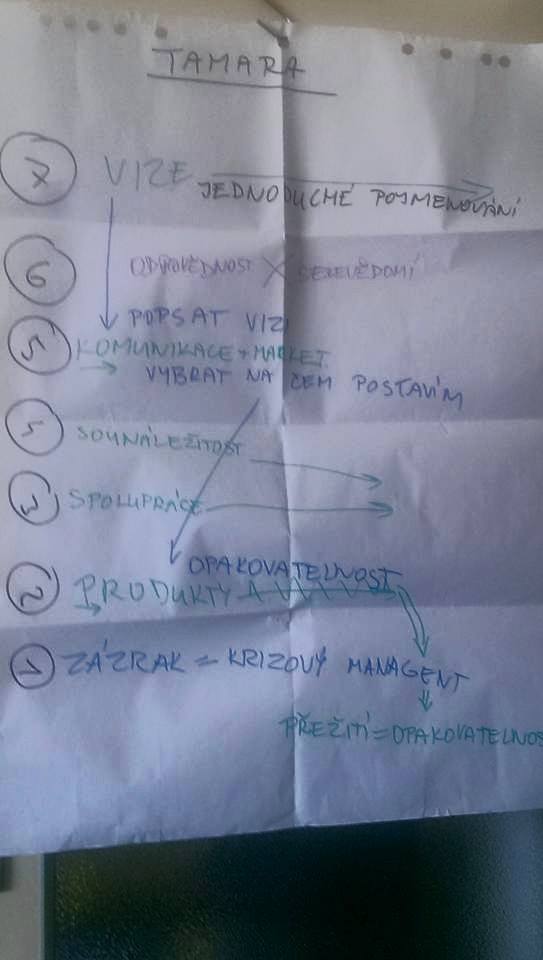 TAMARA
7 VIZE
JEDNODUCHÉ POJMENOVÁNÍ
6 ODPOVĚDNOST X SEBEVĚDOMÍ
POPSAT VIZI
5 KOMUNIKACE + MARKET.
VYBRAT NA ČEM POSTAVÍM
SOUNÁLEŽITOST
3 SPOLUPRÁCE
OPAKOVATELNOST
2 PRODUKTY
1 ZÁZRAK = KRIZOVÝ MANAGENT
PŘEŽITÍ = OPAKOVATELNOS